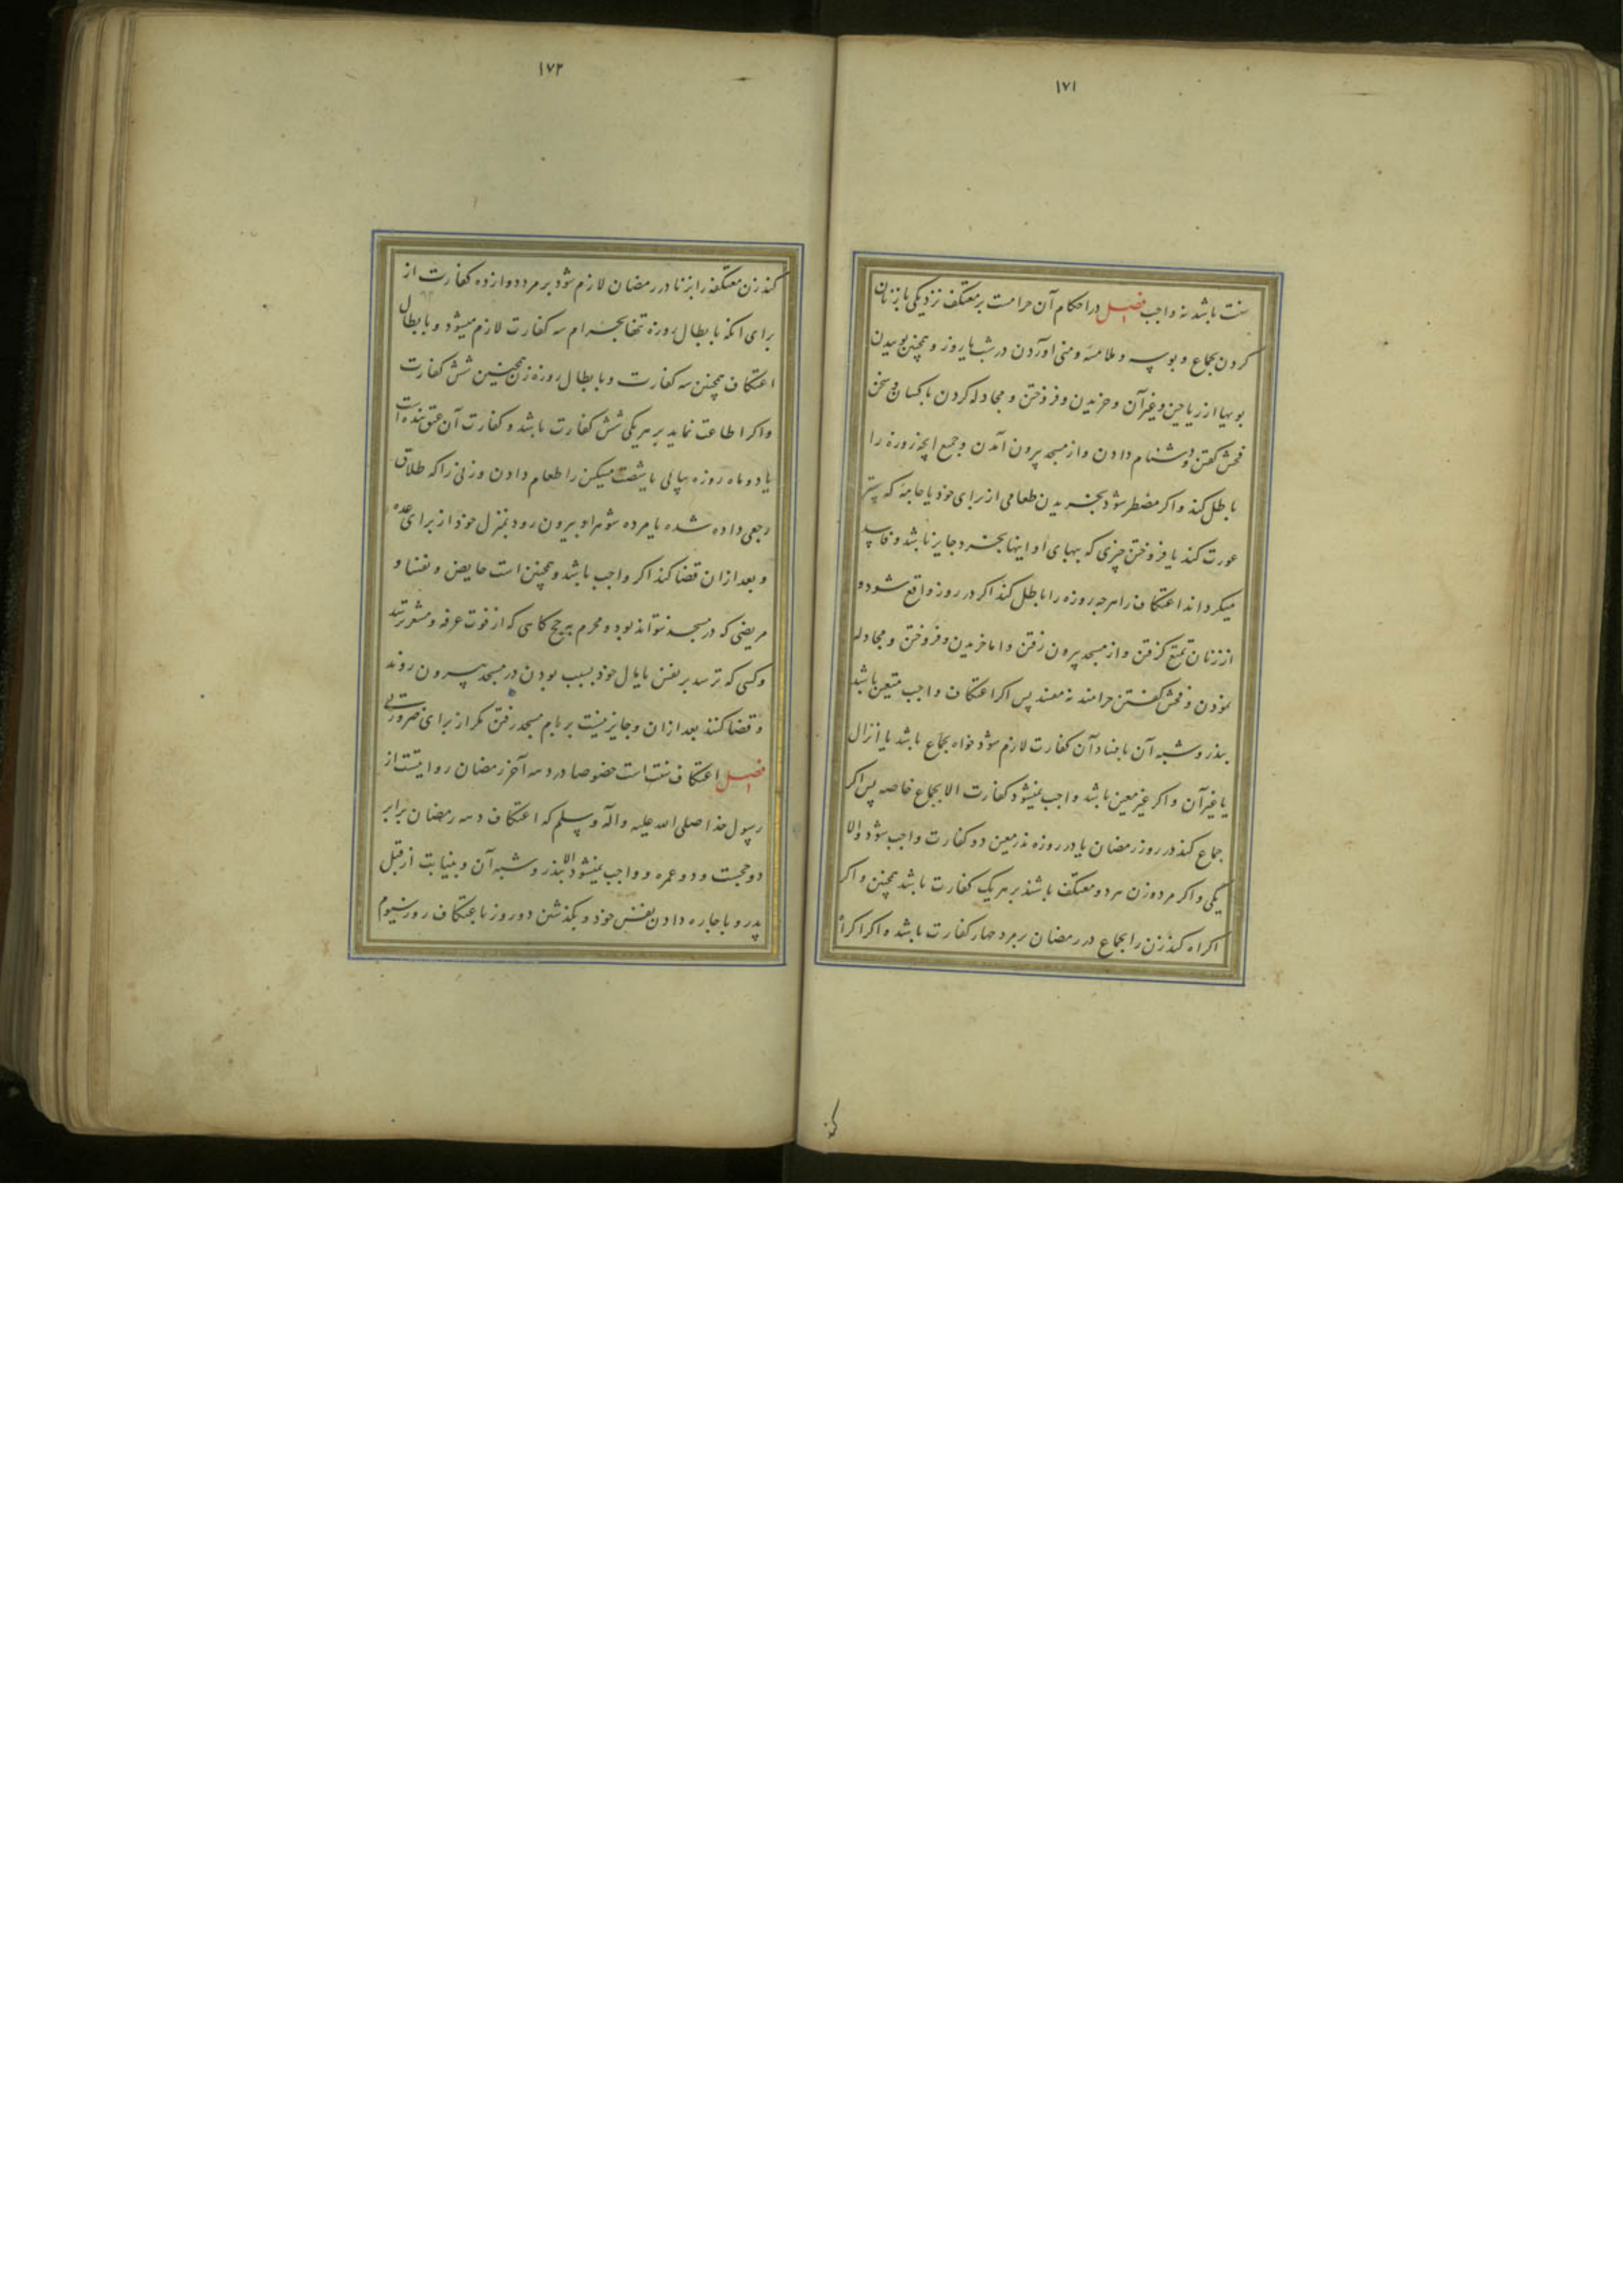 ۱۷۱
سنت باشد نه واجب فصل در احکام آن حرامست بر معتکف نزدیکی با زنان
کردن بجماع و بوسه و ملامسه و منی اوردن در شب یا روز و همچنین بوییدن
بویها از ریاحین و غیر آن و خریدن و فروختن و مجادله کردن با کسان و سخن
فحش گفتن و دشنام دادن و از مسجد بیرون آمدن و جمیع انچه روزه را
باطل کند و اکر مضطر شود بخریدن طعامی از برای خود یا جامه که ستر
عورت کند یا فروختن چیزی که ببهای او اینها بخرد جایز باشد و فاسد
میکرداند اعتکاف را هرچه روزه را باطل کند اکر در روز واقع شود و
از زنان تمتع کرفتن و از مسجد بیرون رفتن و اما خریدن و فروختن و مجادله
نمودن و فحش گفتن حرامند نه مفسد پس اکر اعتکاف واجب متعین باشد
بنذر و شبه آن بافساد آن کفارت لازم شود خواه بجماع باشد یا انزال
یا غیر آن و اکر غیر معین باشد واجب نمیشود کفارت الا بجماع خاصه پس اکر
جماع کند در روز رمضان یا در روزه نذر معین دو کفارت واجب شود والا
یکی و اکر مرد و زن هر دو معتکف باشند بر هر یک کفارت باشد همچنین و اکر
اکراه کند زن را بجماع در رمضان بر مرد چهار کفارت باشد و اکر اکراه
کند
۱۷۲
کند زن معتکفه را بزنا در رمضان لازم شود بر مرد دوازده کفارت از
برای انکه بابطال روزه تنها بحرام سه کفارت لازم میشود و بابطال
اعتکاف همچنین سه کفارت و بابطال روزه زن همچنین شش کفارت
و اکر اطاعت نماید بر هر یکی شش کفارت باشد و کفارت آن عتق بنده است
یا دو ماه روزه پیاپی یا شصت مسکین را طعام دادن و زنی را که طلاق
رجعی داده شده یا مرده شوهر او بیرون رود بمنزل خود از برای عده
و بعد ازان قضا کند اکر واجب باشد و همچنین است حایض و نفسا و
مریضی که در مسجد نتواند بود و محرم بحج کاسی که از فوت عرفه و مشعر ترسد
و کسی که ترسد بر نفس یا مال خود بسبب بودن در مسجد بیرون روند
و قضا کنند بعد ازان و جایز نیست بر بام مسجد رفتن مکر از برای ضرورتی
فصل اعتکاف سنت است خصوصا در دهه آخر رمضان روایتست از
رسول خدا صلی الله علیه و آله وسلم که اعتکاف دهه رمضان برابر
دو حجست و دو عمره و واجب نمیشود الا بنذر و شبه آن و بنیابت از قبل
پدر و باجاره دادن نفس خود و بگذشتن دو روز باعتکاف روز سیوم